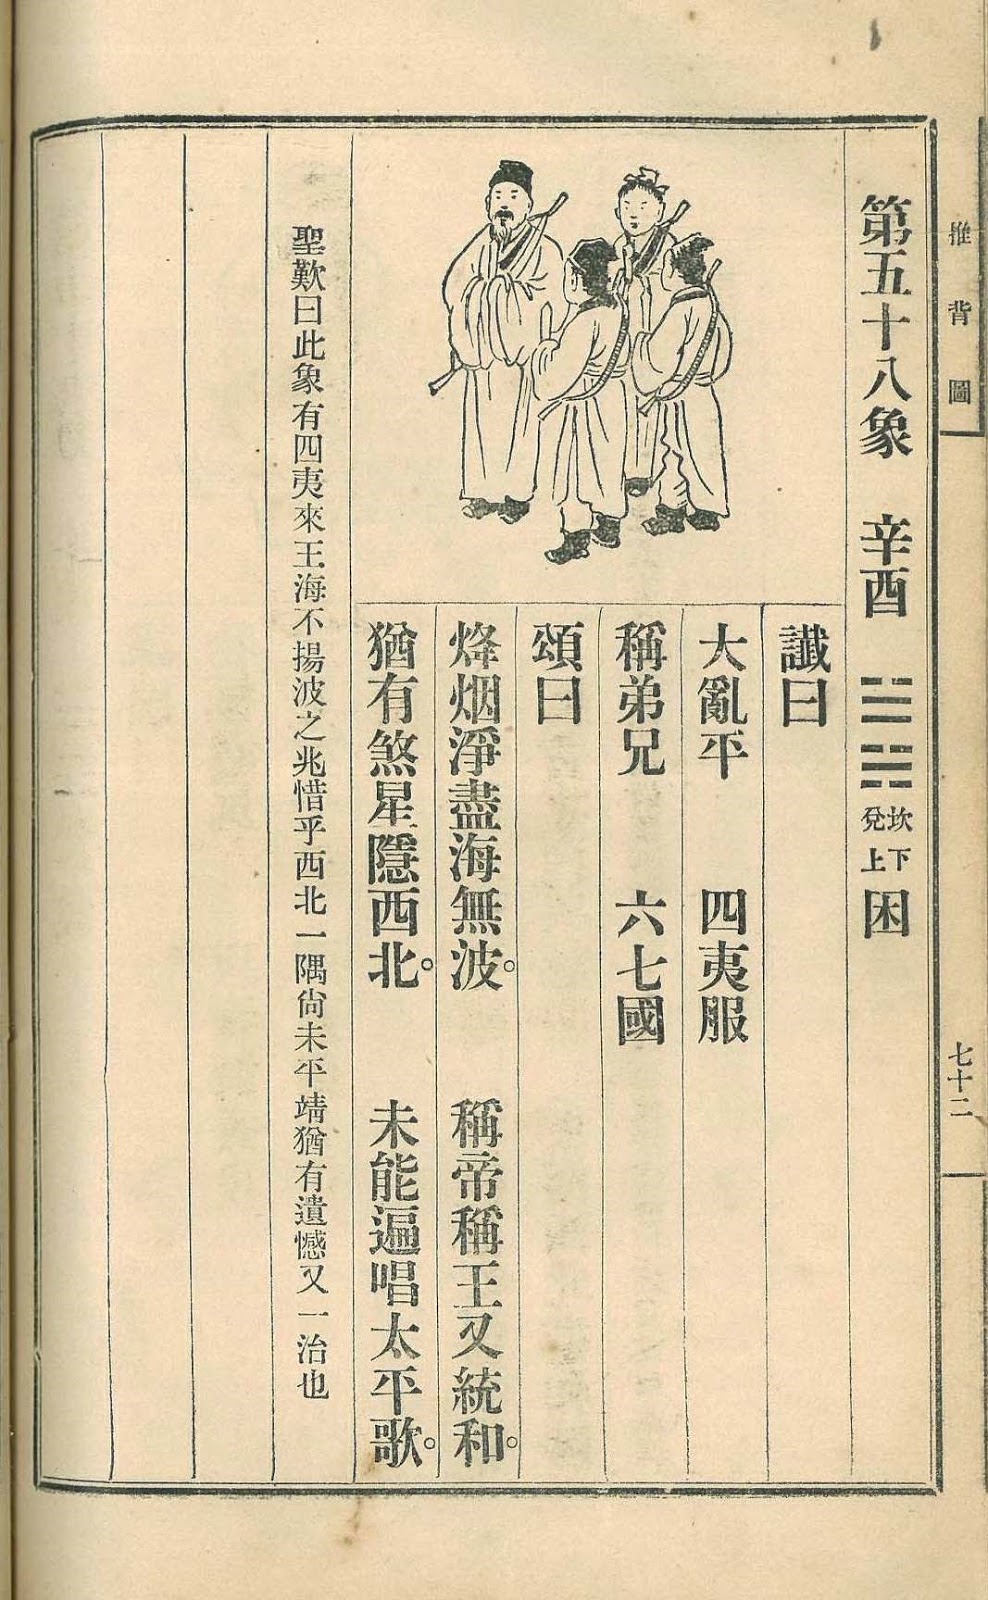 推背圖
七十二
第五十八象 辛酉 ䷮ 坎下兌上 困
讖曰
大亂平 四夷服
稱弟兄 六七國
頌曰
烽烟淨盡海無波。 稱帝稱王又統和。
猶有煞星隱西北。 未能遍唱太平歌。
聖歎曰此象有四夷來王海不揚波之兆惜乎西北一隅尙未平靖猶有遺憾又一治也